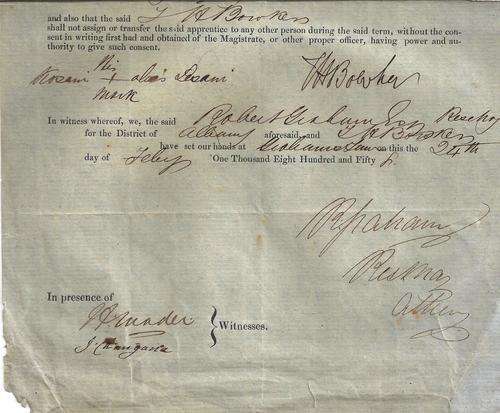 and also that the said T H Bowker
shall not assign or transfer the said apprentice to any other person during the said term, without the con-
sent in writing first had and obtained of the Magistrate, or other proper officer, having power and au-
thority to give such consent.
his
+ alias
mark
T H Bowker
In witness whereof, we, the said Robert Graham Esq
for the District of Albany aforesaid, and T H Bowker
have set our hands at Grahams Town on this the 24th
day of Feby One Thousand Eight Hundred and Fifty
R Graham
In presence of
} Witnesses.